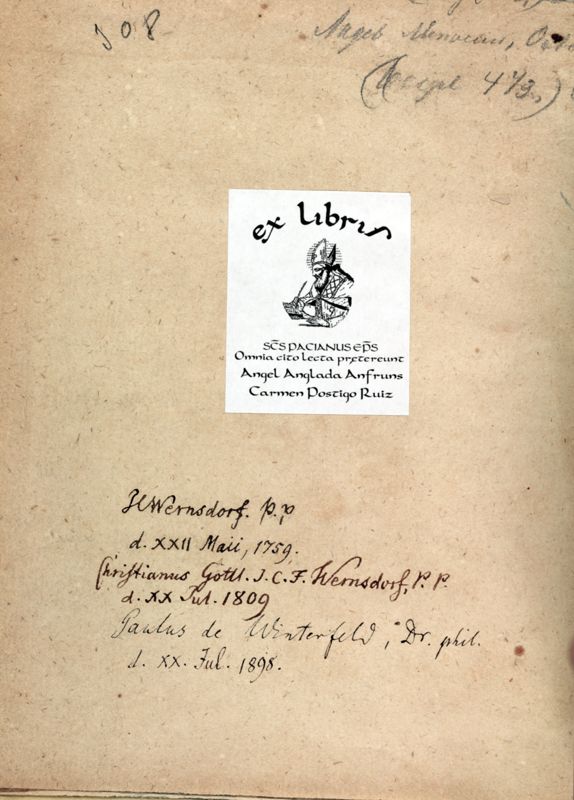 108
(
4 1/3.)
ex Libris
SC̃S PACIANUS EP̃S
Omnia cito lecta prætereunt
Angel Anglada Anfruns
Carmen Postigo Ruiz
Wernsdorf. P. P.
d. XXII Maii, 1759.
Christianus Gottl. J. C. F. Wernsdorf, P. P.
d. XX Jul. 1809
Paulus de Winterfeld, Dr. phil.
d. XX. Jul. 1898.